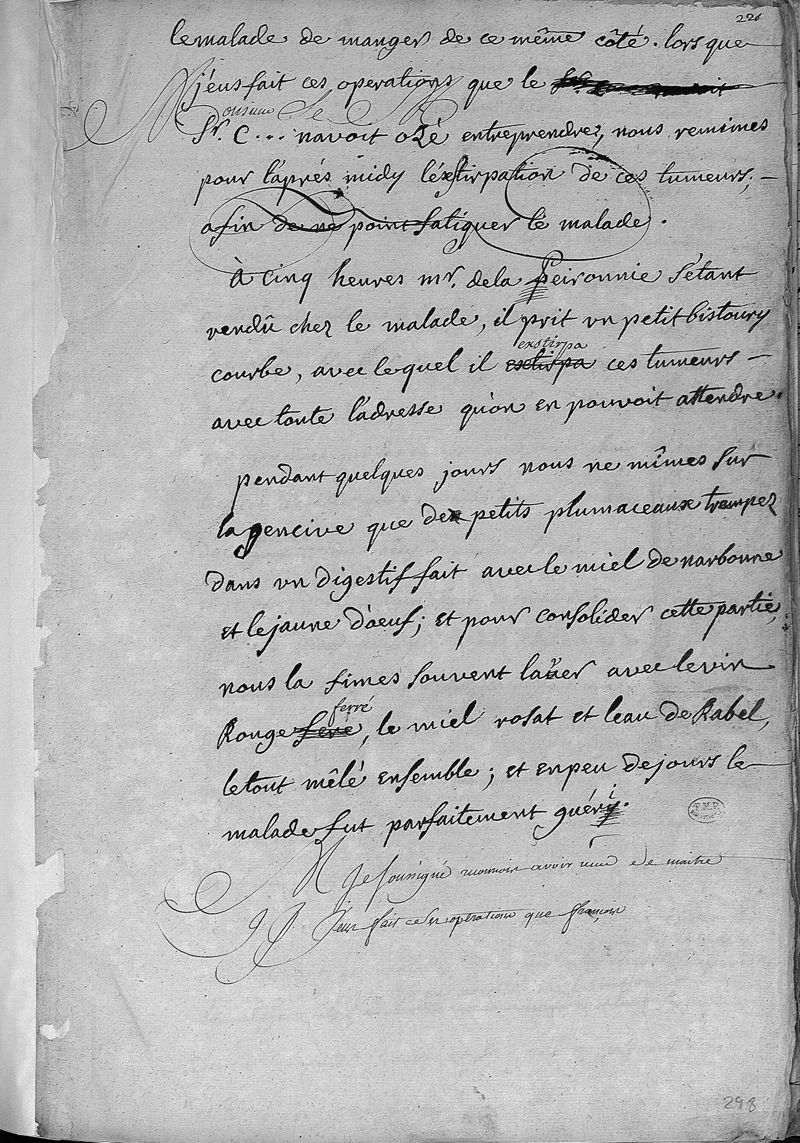 226
le malade de manger de ce même côté. lors que
j'eus fait ces operations que le
Sr. C... navoit ozé entreprendre, nous remimes
pour l'aprés midy l'éxstirpation de ces tumeurs;
afin de ne point fatiguer le malade.
À cinq heures mr. de la Peironnie s'étant
rendû chez le malade, il prit un petit bistoury
exstirpa
courbe, avec lequel il ces tumeurs
avec toute l'adresse qu'on en pouvoit attendre.
pendant quelques jours nous ne mîmes sur
la gencive que de petits plumaceaux trempez
dans un digestif fait avec le miel de narbonne
et le jaune d'oeuf; et pour consolider cette partie,
nous la fimes souvent laver avec le vin
ferré
Rouge fere, le miel rosat et leau de Rabel,
le tout mêlé ensemble; et en peu de jours le
malade fut parfaitement guéri.
Je soussigné avoir de maitre
jeus fait ces operations que françois
298